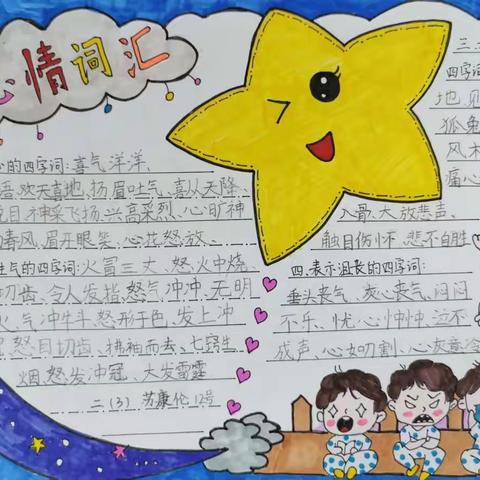 心情词汇
心的四字词:喜气洋洋、
语、欢天喜地、扬眉吐气、喜从天降、
目、神采飞扬、兴高采烈、心旷神
春风、眉开眼笑、心花怒放、
生气的四字词:火冒三丈、怒火中烧、
切齿、令人发指、怒气冲冲、无明
火、气冲牛斗、怒形于色、发上冲
冠、怒目切齿、拂袖而去、七窍生
烟、怒发冲冠、大发雷霆
二(3) 苏康伦 12号
三、
四字词
地、见
狐兔
风木
痛心
入骨、大放悲声、
触目伤怀、悲不自胜
四、表示沮丧的四字词:
垂头丧气、灰心丧气、闷闷
不乐、忧心忡忡、泣不
成声、心如刀割、心灰意冷